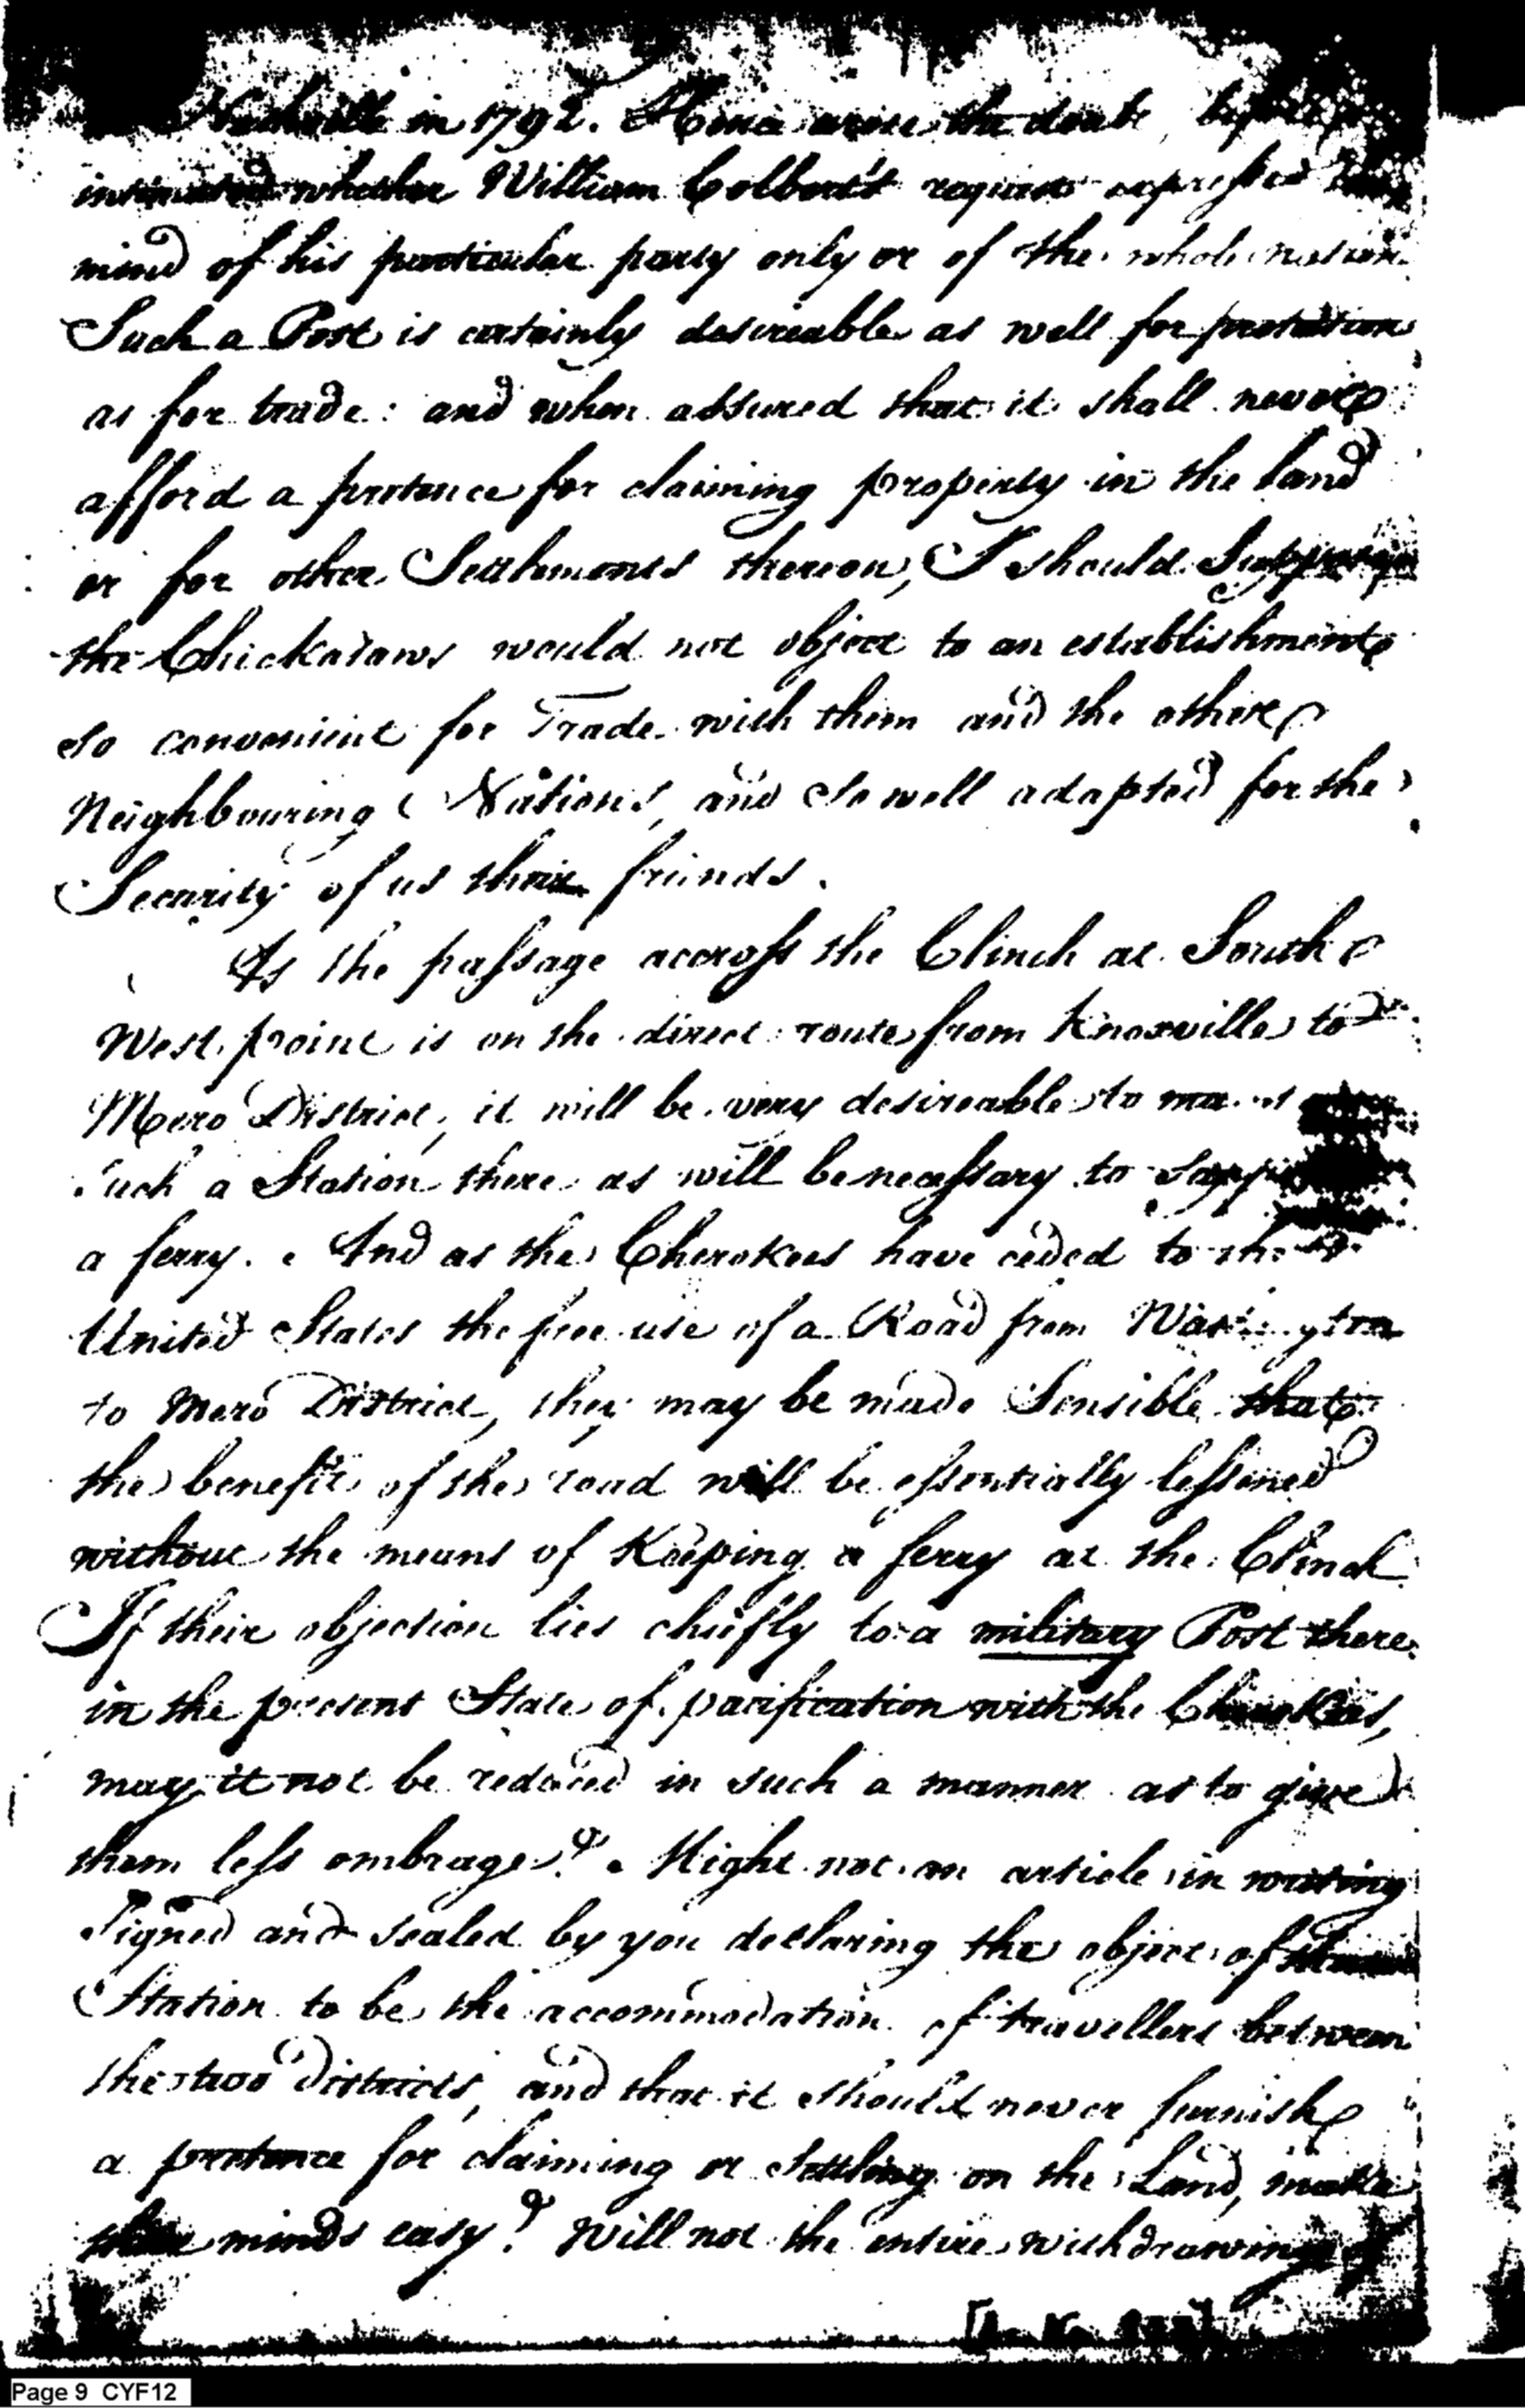 Nashville in 1792. Hence arose the doubt, before
intimated whether William Colbert's request expressed the
mind of his particular party only or of the whole nation.
Such a Post is certainly desireable as well for protection
as for trade: and when assured that it shall never
afford a pretence for claiming property in the land
or for other Settlements thereon, I should Suppose
the Chickasaws would not object to an establishment
so convenient for Trade with them and the other
Neighbouring Nations, and so well adapted for the
Security of us their friends.
As the passage accross the Clinch at South
West point is on the direct route from Knoxville to
Mero District, it will be very desireable to
such a Station there as will be necessary to
a ferry. And as the Cherokees have ceded to the
United States the free use of a Road from Washington
to Mero District, they may be made Sensible that
the benefit of the road will be essentially lessened
without the means of Keeping a ferry at the Clinch
If their objection lies chiefly to a military Post there
in the present State of pacification with the Cherokees,
may it not be reduced in such a manner as to give
them less ombrage? Might not an article in writing
Signed and sealed by you declaring the object of
Station to be the accommodation of travellers between
the two districts, and that it should never furnish
a pretence for claiming or settling on the Land, make
their minds easy? Will not the entire withdrawing of
Page 9 CYF12